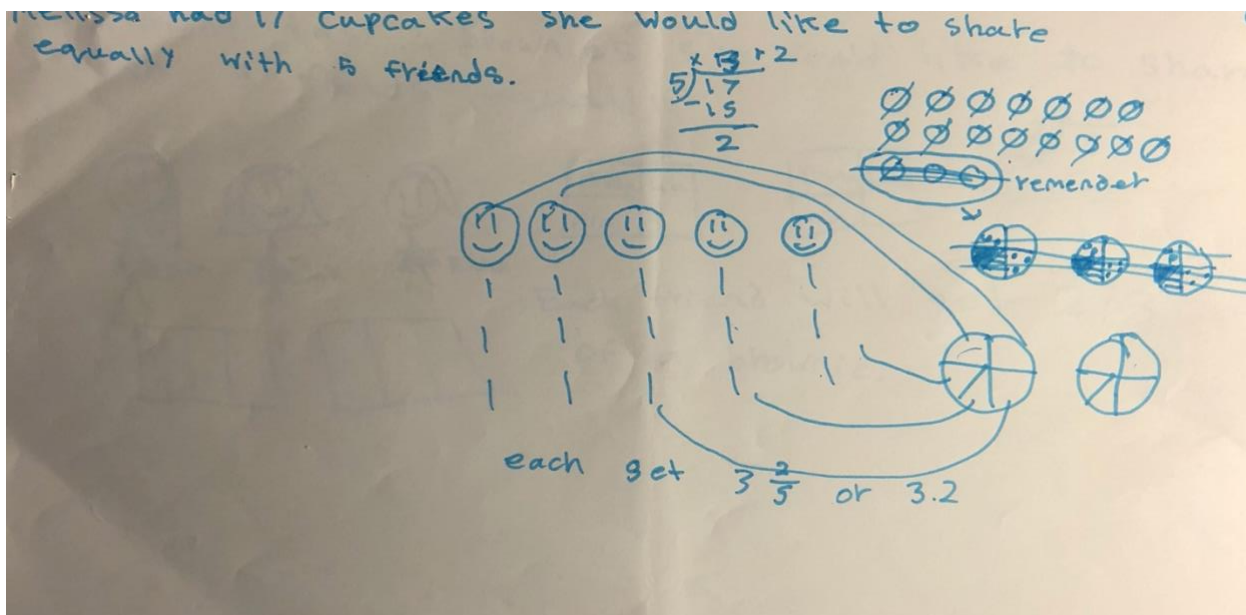 Melissa had 17 cupcakes she would like to share
equally with 5 friends.
x 3 r2
5)17
-15
2
remender
each get 3 2/5 or 3.2